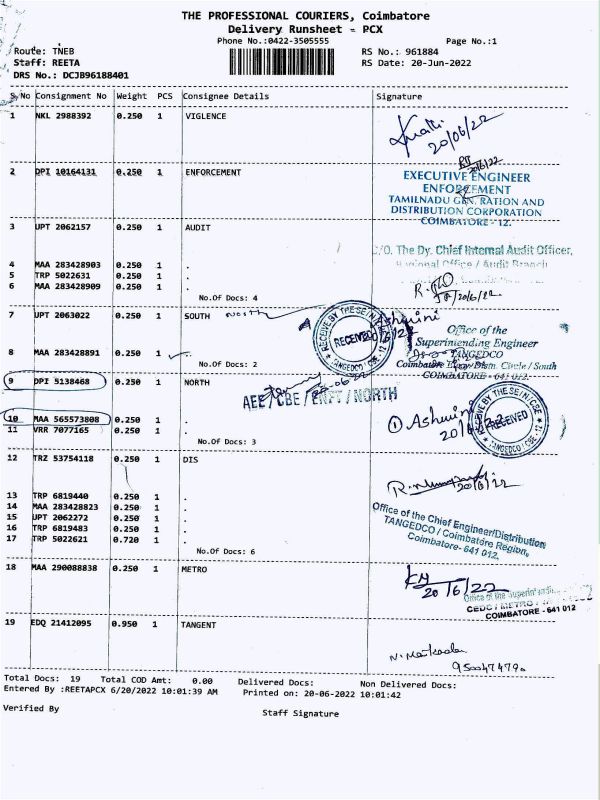 THE PROFESSIONAL COURIERS, Coimbatore
Delivery Runsheet - PCX
Phone No.:0422-3505555 Page No.:1
Route: TNEB RS No.: 961884
Staff: REETA RS Date: 20-Jun-2022
DRS No.: DCJB96188401
S No Consignment No Weight PCS Consignee Details Signature
1 NKL 2988392 0.250 1 VIGLENCE
20/06/22
2 DPI 10164131 0.250 1 ENFORCEMENT
EXECUTIVE ENGINEER
ENFORCEMENT
TAMILNADU GEN RATION AND
DISTRIBUTION CORPORATION
COIMBATORE - 12.
3 UPT 2062157 0.250 1 AUDIT
O/O. The Dy. Chief Internal Audit Officer,
Regional Office / Audit Branch
4 MAA 283428903 0.250 1 .
5 TRP 5022631 0.250 1 .
6 MAA 283428909 0.250 1 .
No.Of Docs: 4
20/6/22
7 UPT 2063022 0.250 1 SOUTH North
RECEIVED
Ashwini
Office of the
Superintending Engineer
TANGEDCO
Coimbatore Elecy Distn. Circle / South
COIMBATORE - 641 012.
8 MAA 283428891 0.250 1 .
No.Of Docs: 2
9 DPI 5138468 0.250 1 NORTH
AEE / CBE / ENFT / NORTH
10 MAA 565573808 0.250 1 .
11 VRR 7077165 0.250 1 .
No.Of Docs: 3
① Ashwini
RECEIVED
12 TRZ 53754118 0.250 1 DIS
20/6/22
13 TRP 6819440 0.250 1 .
14 MAA 283428823 0.250 1 .
15 UPT 2062272 0.250 1 .
16 TRP 6819483 0.250 1 .
17 TRP 5022621 0.720 1 .
No.Of Docs: 6
Office of the Chief Engineer/Distribution
TANGEDCO / Coimbatore Region,
Coimbatore- 641 012.
18 MAA 290088838 0.250 1 METRO
20/6/22
Office of the Superint
CEDC / METRO
COIMBATORE - 641 012
19 EDQ 21412095 0.950 1 TANGENT
Total Docs: 19 Total COD Amt: 0.00 Delivered Docs: Non Delivered Docs:
Entered By :REETAPCX 6/20/2022 10:01:39 AM Printed on: 20-06-2022 10:01:42
Verified By Staff Signature